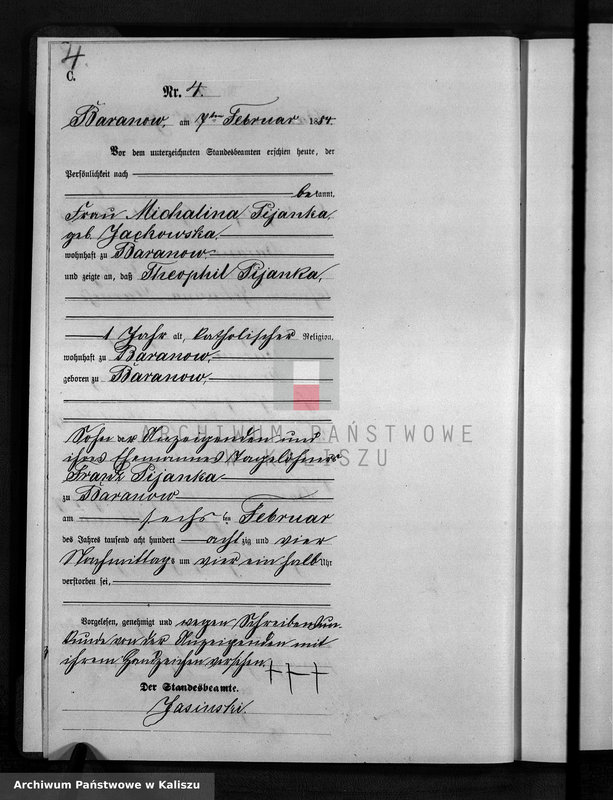 4.
C.
Nr. 4.
Baranow am 7ten Februar 1884.
Vor dem unterzeichneten Standesbeamten erschien heute, der
Persönlichkeit nach
bekannt,
Frau Michalina Pijanka
geb. Jackowska,
wohnhaft zu Baranow
und zeigte an, daß Theophil Pijanka,
1 Jahr alt, katholischer Religion,
wohnhaft zu Baranow
geboren zu Baranow,
Sohn der Anzeigenden und
ihres Ehemannes Tagelöhner
Franz Pijanka
zu Baranow
am sechs ten Februar
des Jahres tausend acht hundert achtzig und vier
Nachmittags um vier ein halb Uhr
verstorben sei,
Vorgelesen, genehmigt und wegen Schreibensun-
kunde von der Anzeigenden mit
ihrem Handzeichen versehen
+++
Der Standesbeamte.
Jasinski.
ARCHIWUM PAŃSTWOWE
W KALISZU
Archiwum Państwowe w Kaliszu